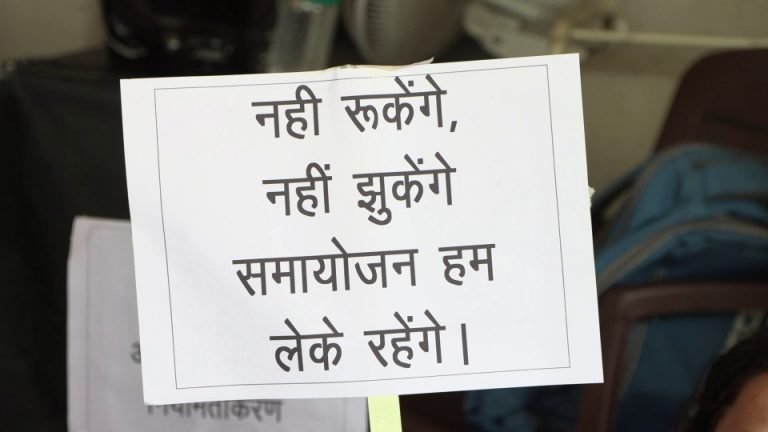 नही रूकेंगे,
नहीं झुकेंगे
समायोजन हम
लेके रहेंगे।
नियमितीकरण